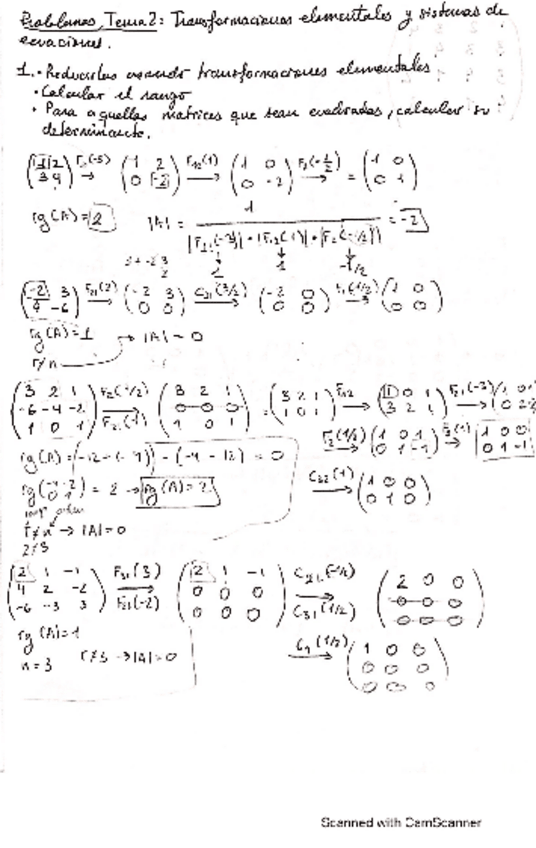 Problemas Tema 2: Transformaciones elementales y sistemas de
ecuaciones.
1. • Reducirlas usando transformaciones elementales
• Calcular el rango
• Para aquellas matrices que sean cuadradas, calcular su
determinante.
(1 2 / 3 4) → (1 2 / 0 -2) F12(1) → (1 0 / 0 -2) F2(-1/2) → = (1 0 / 0 1)
rg(A) = 2 |A| = 1 / = -2
(-2 3 / 4 -6) F21(2) → (-2 3 / 0 0) C21(3/2) → (-2 0 / 0 0) → (1 0 / 0 0)
rg(A) = 1 → |A| = 0
r≠n
(3 2 1 / -6 -4 -2 / 1 0 1) → (3 2 1 / 0 0 0 / 1 0 1) = (3 2 1 / 1 0 1) F12 → (1 0 1 / 3 2 1) F21(-3) →
F2(1/2) → (1 0 1 / 0 1 -1) → (1 0 0 / 0 1 -1)
rg(A) = = 0
= 2 → rg(A) = 2
C32(1) → (1 0 0 / 0 1 0)
r≠n → |A| = 0
2≠3
(2 1 -1 / 4 2 -2 / -6 -3 3) F31(3) F21(-2) → (2 1 -1 / 0 0 0 / 0 0 0) C21(-1/2) C31(1/2) → (2 0 0 / 0 0 0 / 0 0 0)
rg(A) = 1
n = 3 r≠3 → |A| = 0
C1(1/2) → (1 0 0 / 0 0 0 / 0 0 0)
Scanned with CamScanner